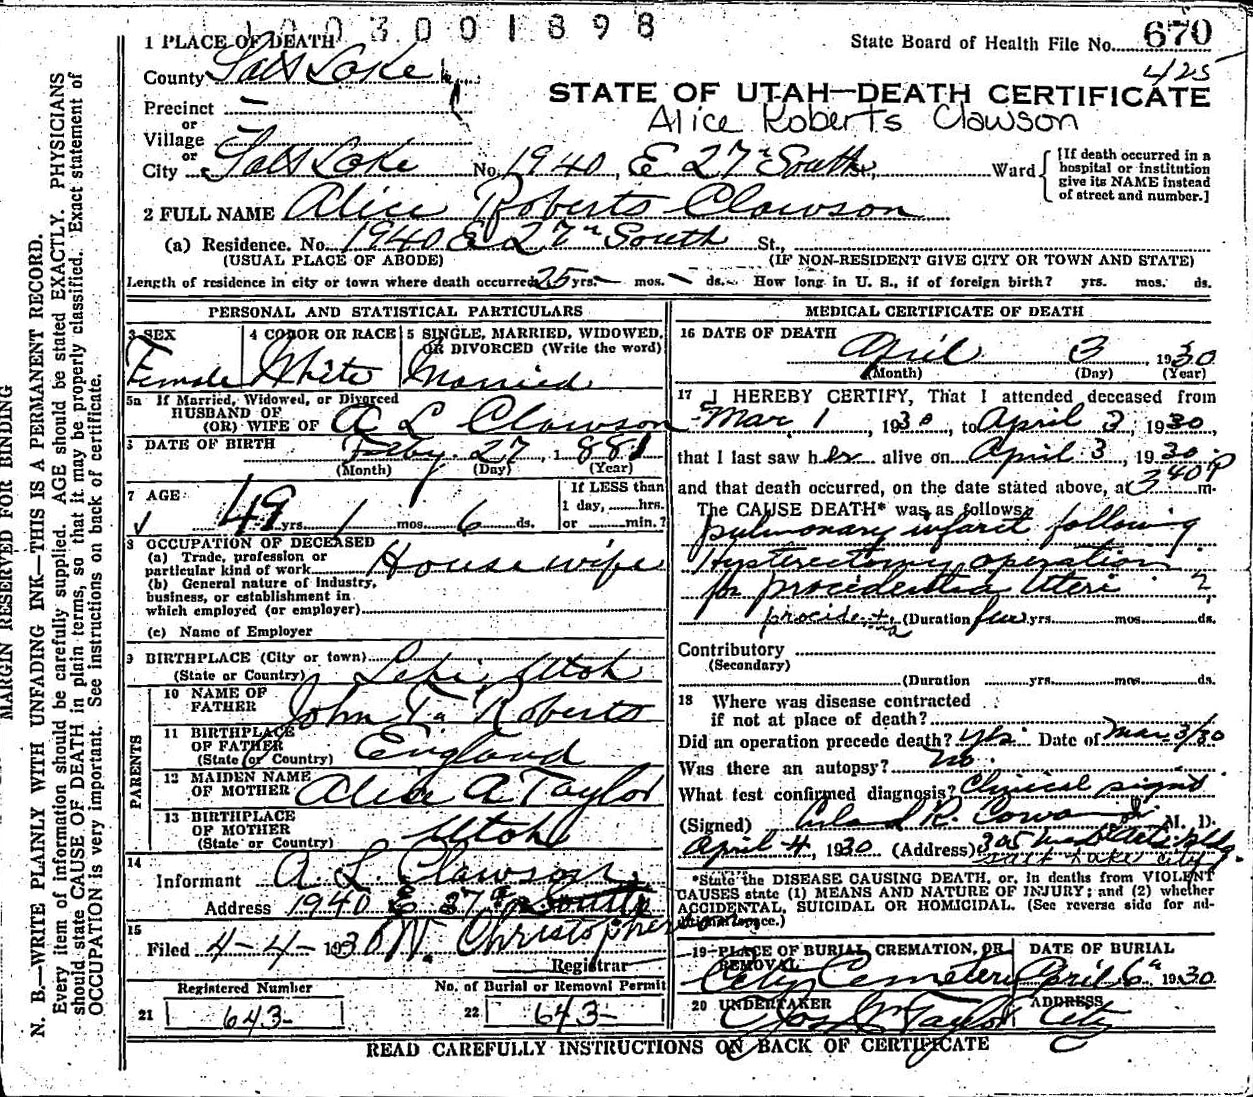 1003001898
1 PLACE OF DEATH
State Board of Health File No. 670
4/25
County Salt Lake
STATE OF UTAH—DEATH CERTIFICATE
Precinct —
Alice Roberts Clawson
or
Village
or
City Salt Lake No. 1940 E 27th South, Ward
[If death occurred in a hospital or institution give its NAME instead of street and number.]
2 FULL NAME Alice Roberts Clawson
(a) Residence. No. 1940 E 27th South St.,
(USUAL PLACE OF ABODE) (IF NON-RESIDENT GIVE CITY OR TOWN AND STATE)
Length of residence in city or town where death occurred 25 yrs. — mos. — ds. How long in U. S., if of foreign birth? yrs. mos. ds.
PERSONAL AND STATISTICAL PARTICULARS
3 SEX
Female
4 COLOR OR RACE
White
5 SINGLE, MARRIED, WIDOWED, OR DIVORCED (Write the word)
Married
5a If Married, Widowed, or Divorced
HUSBAND OF
(OR) WIFE OF A L Clawson
6 DATE OF BIRTH Feby. 27, 1881
(Month) (Day) (Year)
7 AGE
49 yrs. 1 mos. 6 ds.
If LESS than
1 day, hrs.
or min.?
8 OCCUPATION OF DECEASED
(a) Trade, profession or
particular kind of work House wife
(b) General nature of industry,
business, or establishment in
which employed (or employer)
(c) Name of Employer
9 BIRTHPLACE (City or town)
(State or Country) Lehi Utah
PARENTS
10 NAME OF FATHER John T. Roberts
11 BIRTHPLACE OF FATHER
(State or Country) England
12 MAIDEN NAME OF MOTHER Alice A Taylor
13 BIRTHPLACE OF MOTHER
(State or Country) Utah
14
Informant A. L. Clawson
Address 1940 E 27th South
15
Filed 4-4-1930 W. Christopherson
Registrar
Registered Number
21 643
No. of Burial or Removal Permit
22 643
MEDICAL CERTIFICATE OF DEATH
16 DATE OF DEATH
April 3 1930
(Month) (Day) (Year)
17 I HEREBY CERTIFY, That I attended deceased from
Mar 1, 1930, to April 3, 1930,
that I last saw her alive on April 3, 1930
and that death occurred, on the date stated above, at 3 40 P m.
The CAUSE DEATH* was as follows:
pulmonary infarct following
Hysterectomy operation
for procidentia Uteri ?
(Duration few yrs. mos. ds.
Contributory
(Secondary)
(Duration yrs. mos. ds.
18 Where was disease contracted
if not at place of death?
Did an operation precede death? Yes Date of Mar 3/30
Was there an autopsy? No.
What test confirmed diagnosis? Clinical signs
(Signed) R. Cowan M. D.
April 4, 1930 (Address) 305 bldg.
Salt Lake City
*State the DISEASE CAUSING DEATH, or, in deaths from VIOLENT
CAUSES state (1) MEANS AND NATURE OF INJURY; and (2) whether
ACCIDENTAL, SUICIDAL OR HOMICIDAL. (See reverse side for ad-
ditional space.)
19 PLACE OF BURIAL, CREMATION, OR REMOVAL
City Cemetery
DATE OF BURIAL
April 6th 1930
20 UNDERTAKER
Jos Wm Taylor
ADDRESS
City
READ CAREFULLY INSTRUCTIONS ON BACK OF CERTIFICATE
MARGIN RESERVED FOR BINDING
N. B.—WRITE PLAINLY WITH UNFADING INK—THIS IS A PERMANENT RECORD.
Every item of information should be carefully supplied. AGE should be stated EXACTLY. PHYSICIANS
should state CAUSE OF DEATH in plain terms, so that it may be properly classified. Exact statement of
OCCUPATION is very important. See instructions on back of certificate.